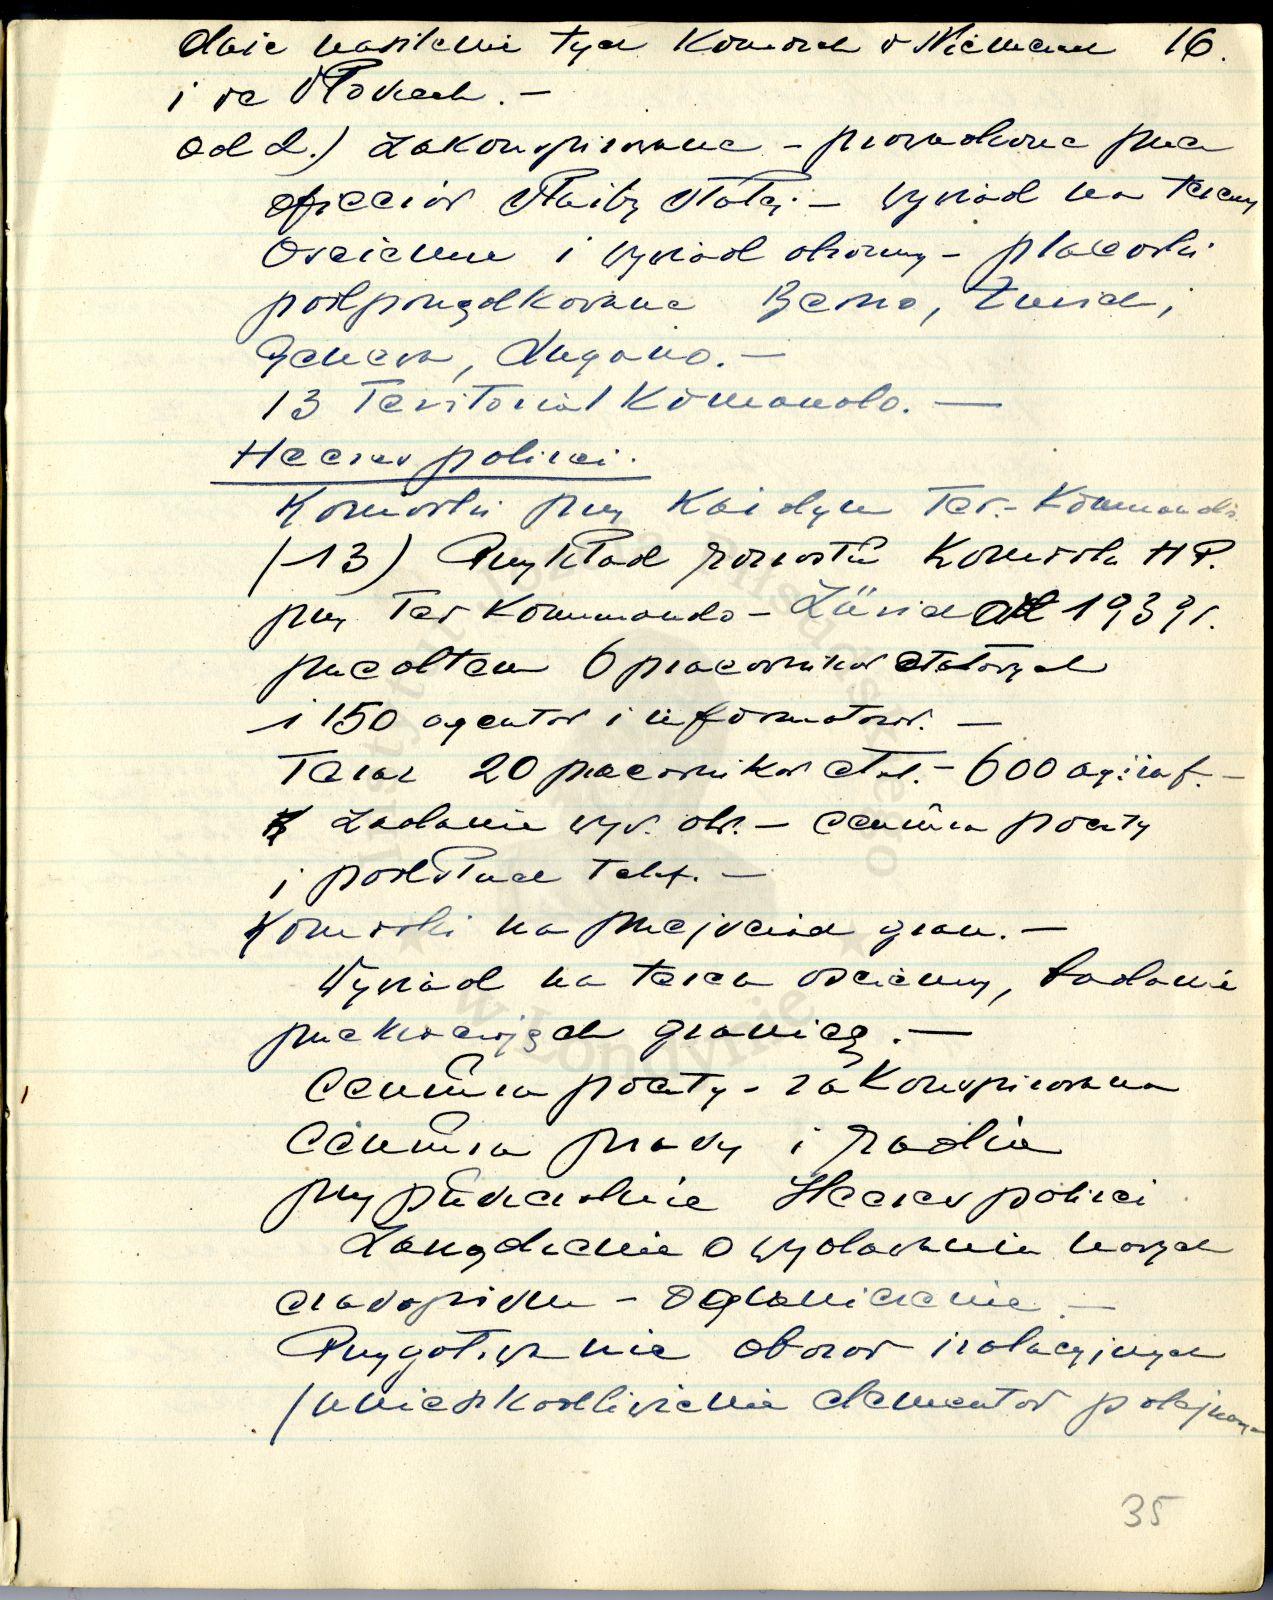 duże nasilenie tych komórek w Niemczech 16.
i we Włoszech. –
od 2.) Zakonspirowane – prowadzone przez
oficerów służby stałej – wywiad na tereny
Ościenne i wywiad obronny – placówki
podporządkowane Berno, Zurich,
Geneva, Lugano. –
13 Territorial Kommando. –
Heeres polizei.
Komórki przy każdym Ter. – Kommando
(–13) Przykład rozrostu Komórki H P.
przy Ter Kommando – Zürich od 1939 r.
przedtem 6 pracowników etatowych
i 150 agentów i informatorów. –
Teraz 20 pracowników etat. – 600 ag. i inf. –
Zadanie wyw. obr. – cenzura poczty
i podsłuch telef. –
Komórki na przejściach gran. –
Wywiad na teren ościenny, badanie
przekraczających granicę. –
Cenzura poczty – zakonspirowana
Cenzura prasy i radia
przy pośrednictwie Heeres polizei
Zarządzenie o wydawaniu nowych
czasopism – ograniczenie –
Przygotowanie obozów izolacyjnych
/unieszkodliwienie elementów
35
Instytut Józefa Piłsudskiego
w Londynie